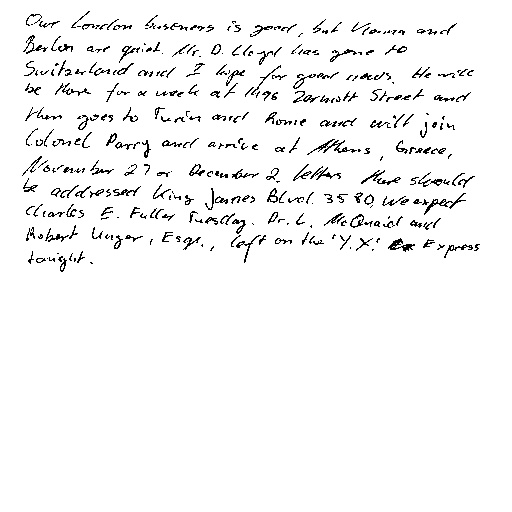 Our London business is good, but Vienna and
Berlin are quiet. Mr. D. Lloyd has gone to
Switzerland and I hope for good news. He will
be there for a week at 1496 Zermott Street and
then goes to Turin and Rome and will join
Colonel Parry and arrive at Athens, Greece,
November 27 or December 2. Letters there should
be addressed King James Blvd. 3580. We expect
Charles E. Fuller Tuesday. Dr. L. McQuaid and
Robert Unger, Esqr., left on the "Y.X." Express
tonight.